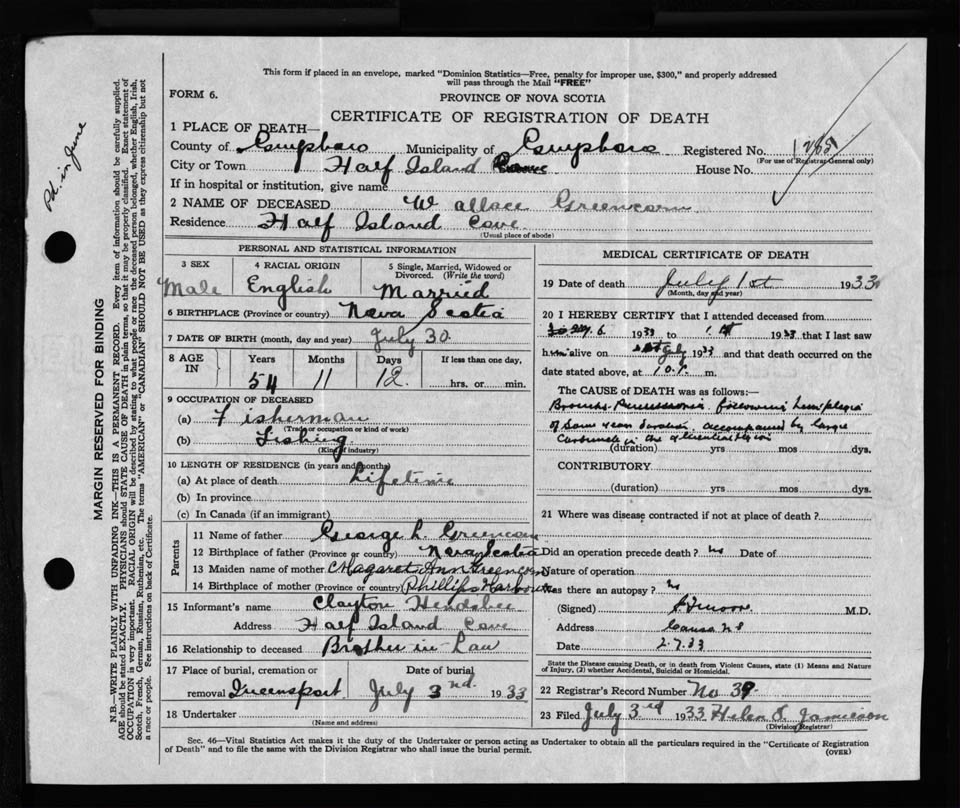 This form if placed in an envelope, marked "Dominion Statistics—Free, penalty for improper use, $300," and properly addressed
will pass through the Mail "FREE"
FORM 6.
PROVINCE OF NOVA SCOTIA
CERTIFICATE OF REGISTRATION OF DEATH
1 PLACE OF DEATH—
County of Guysboro Municipality of Guysboro Registered No.
(For use of Registrar-General only)
City or Town Half Island Cove House No.
If in hospital or institution, give name
2 NAME OF DECEASED Wallace Greencorn
Residence Half Island Cove
(Usual place of abode)
PERSONAL AND STATISTICAL INFORMATION
3 SEX Male
4 RACIAL ORIGIN English
5 Single, Married, Widowed or Divorced. (Write the word) Married
6 BIRTHPLACE (Province or country) Nova Scotia
7 DATE OF BIRTH (month, day and year) July 30
8 AGE IN Years 54 Months 11 Days 12 If less than one day, hrs. or min.
9 OCCUPATION OF DECEASED
(a) Fisherman
(Trade or occupation or kind of work)
(b) Fishing
(Kind of industry)
10 LENGTH OF RESIDENCE (in years and months)
(a) At place of death Lifetime
(b) In province
(c) In Canada (if an immigrant)
Parents
11 Name of father George L. Greencorn
12 Birthplace of father (Province or country) Nova Scotia
13 Maiden name of mother Magaret Ann Greencorn
14 Birthplace of mother (Province or country) Phillips Harbour
15 Informant's name Clayton Hendsbee
Address Half Island Cove
16 Relationship to deceased Brother-in-Law
17 Place of burial, cremation or removal Queensport Date of burial July 3rd 1933
18 Undertaker
(Name and address)
MEDICAL CERTIFICATE OF DEATH
19 Date of death July 1st 1933
(Month, day and year)
20 I HEREBY CERTIFY that I attended deceased from
6 1933 to 1st 1933 that I last saw
him alive on July 1933 and that death occurred on the
date stated above, at 10 P. m.
The CAUSE OF DEATH was as follows:
Broncho Pneumonia following hemiplegia
of some years duration accompanied by large
Carbuncle in the region
(duration) yrs mos dys.
CONTRIBUTORY
(duration) yrs mos dys.
21 Where was disease contracted if not at place of death?
Did an operation precede death? No Date of
Nature of operation
Was there an autopsy? No
(Signed) Moore M.D.
Address Canso N S
Date 2.7.33
State the Disease causing Death, or in death from Violent Causes, state (1) Means and Nature
of Injury, (2) whether Accidental, Suicidal or Homicidal.
22 Registrar's Record Number No 39.
23 Filed July 3rd 1933 Helen S. Jamieson
(Division Registrar)
Sec. 46—Vital Statistics Act makes it the duty of the Undertaker or person acting as Undertaker to obtain all the particulars required in the "Certificate of Registration
of Death" and to file the same with the Division Registrar who shall issue the burial permit.
(OVER)
MARGIN RESERVED FOR BINDING
N.B.—WRITE PLAINLY WITH UNFADING INK—THIS IS A PERMANENT RECORD. Every item of information should be carefully supplied.
AGE should be stated EXACTLY. PHYSICIANS should STATE CAUSE OF DEATH in plain terms, so that it may be properly classified. Exact statement of
OCCUPATION is very important. RACIAL ORIGIN will be described by stating to what people or race the deceased person belonged, whether English, Irish,
Scotch, French, German, Russian, Ruthenian, etc. The terms "AMERICAN" or "CANADIAN" SHOULD NOT BE USED as they express citizenship but not
a race or people. See instructions on back of Certificate.
in June